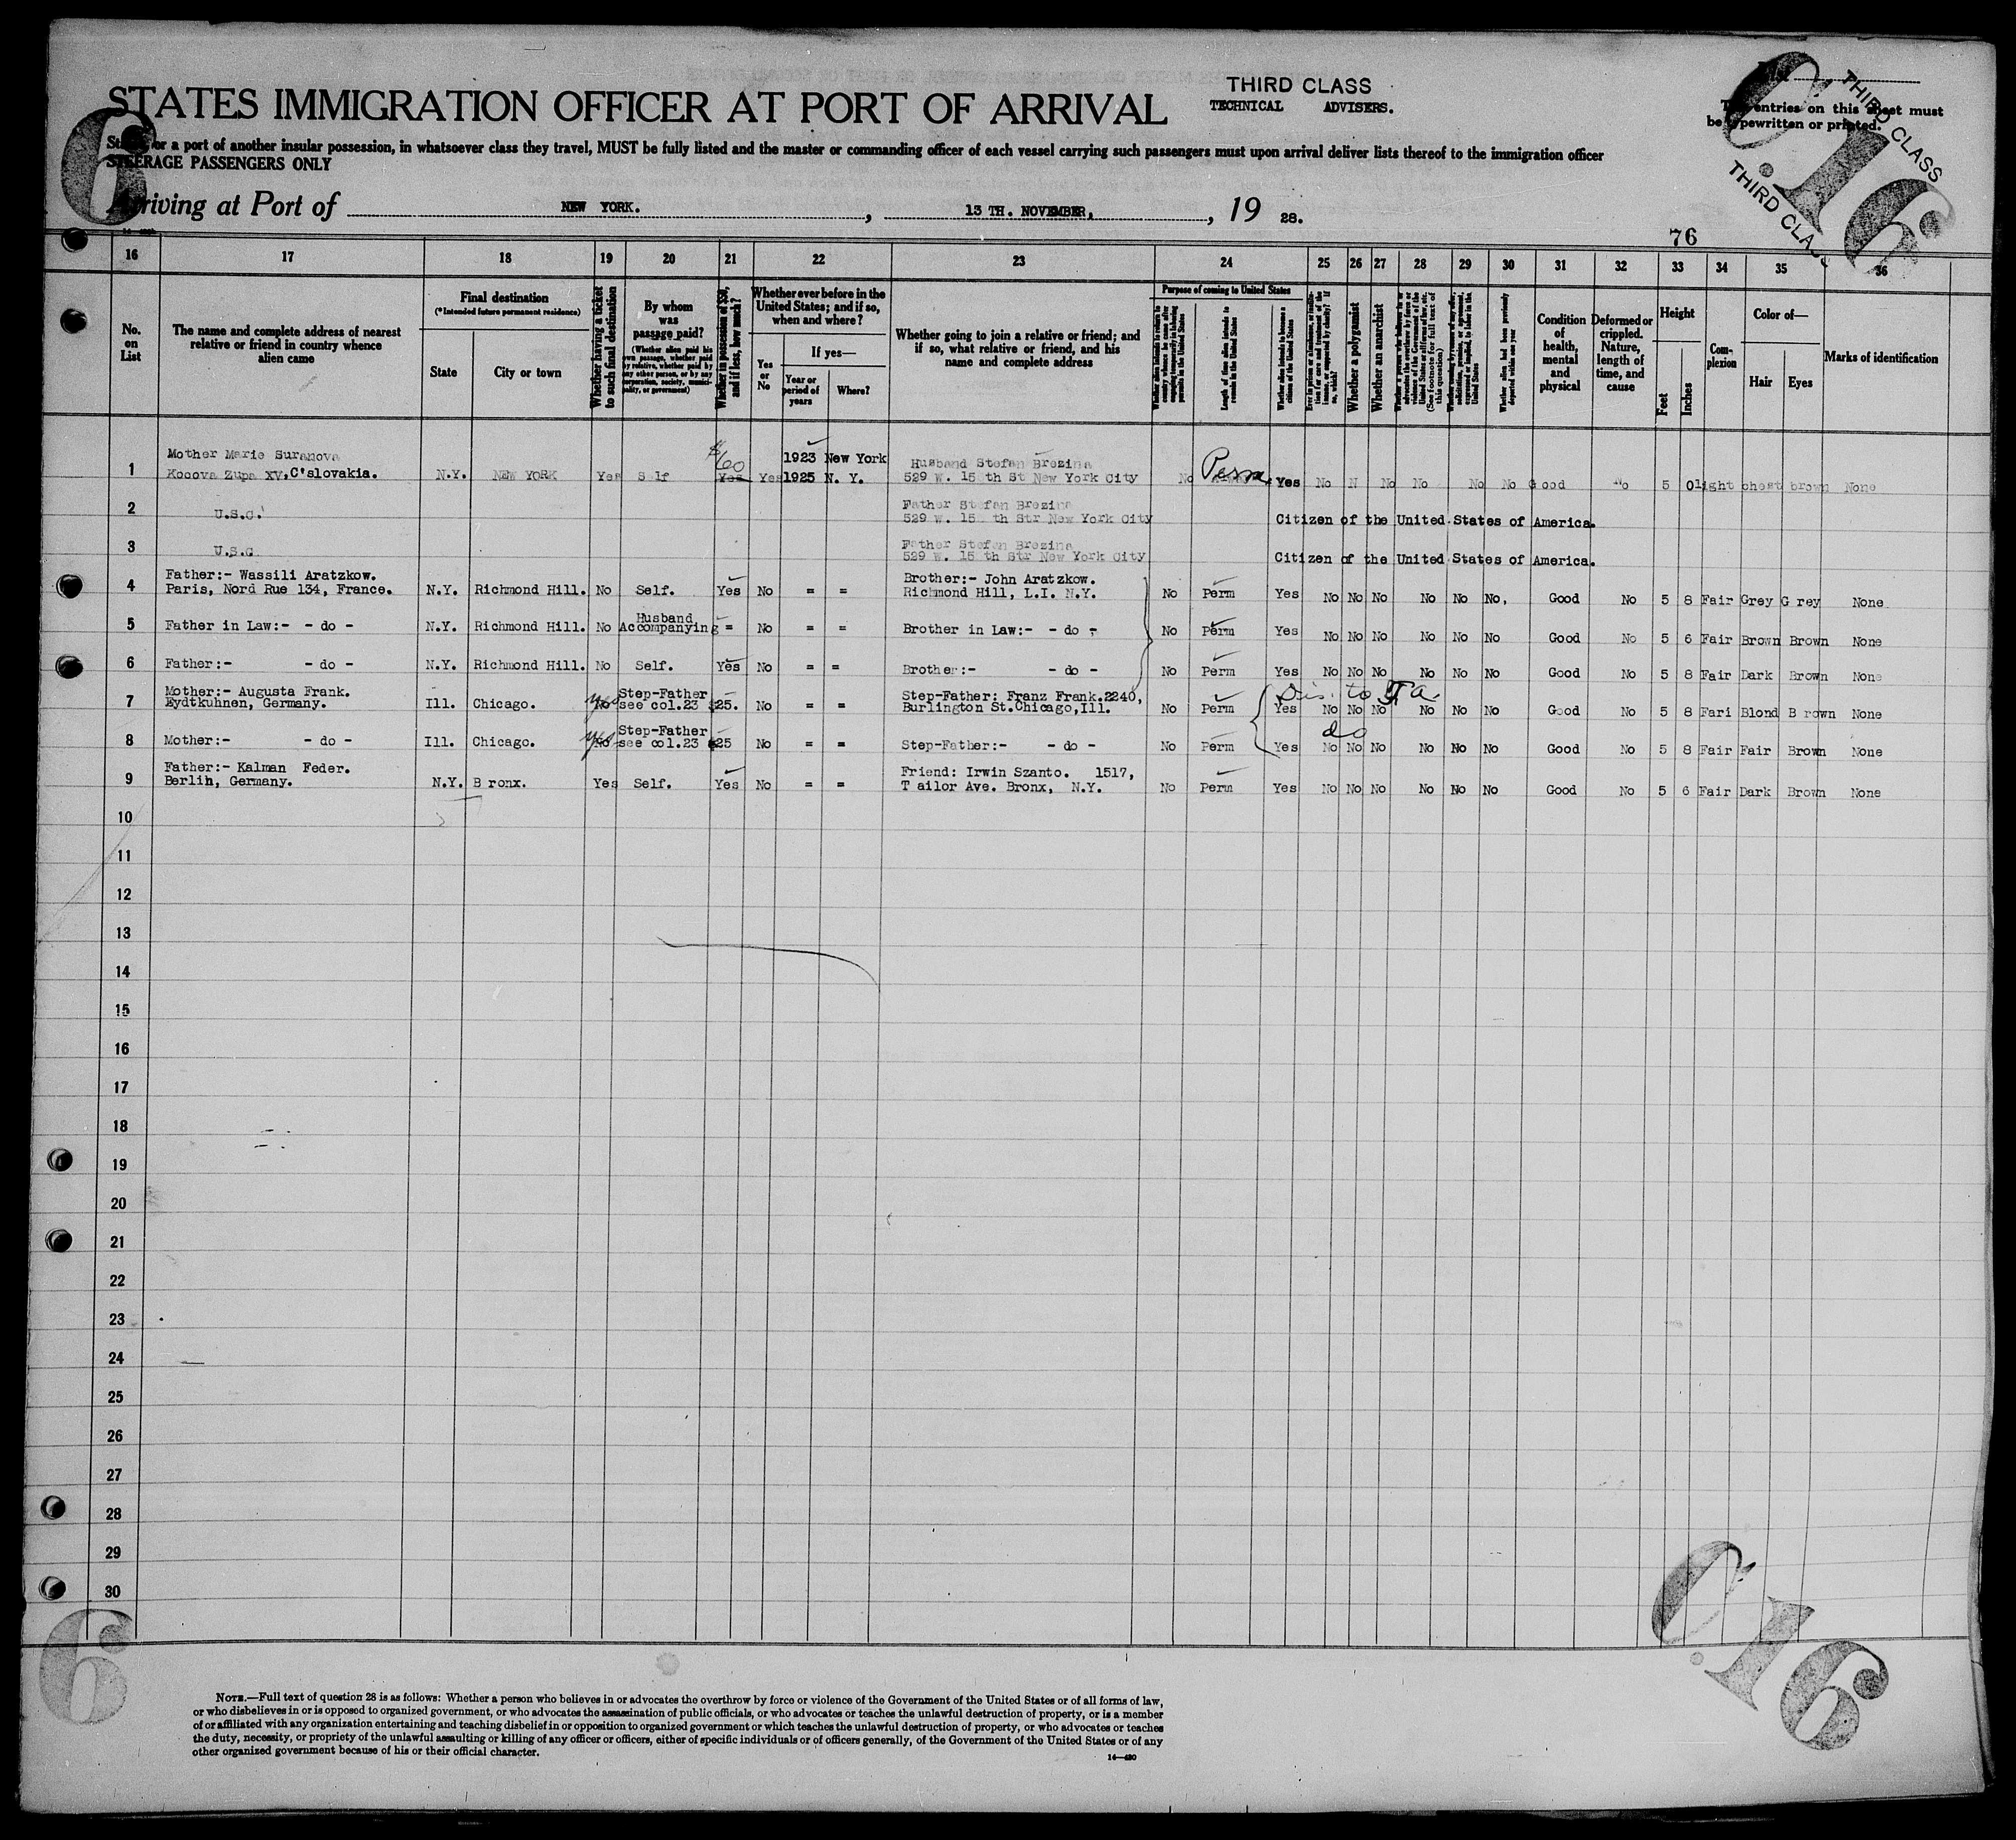 THIRD CLASS
TECHNICAL ADVISERS.
STATES IMMIGRATION OFFICER AT PORT OF ARRIVAL
entries on this sheet must
be typewritten or printed.
THIRD CLASS
THIRD CLASS
C.16
6
or a port of another insular possession, in whatsoever class they travel, MUST be fully listed and the master or commanding officer of each vessel carrying such passengers must upon arrival deliver lists thereof to the immigration officer
STEERAGE PASSENGERS ONLY
Arriving at Port of NEW YORK. , 13 TH. NOVEMBER, , 19 28.
76
16 17 18 19 20 21 22 23 24 25 26 27 28 29 30 31 32 33 34 35 36
No. on List
The name and complete address of nearest relative or friend in country whence alien came
Final destination
(*Intended future permanent residence)
State
City or town
Whether having a ticket to such final destination
By whom was passage paid?
(Whether alien paid his own passage, whether paid by relative, whether paid by any other person, or by any corporation, society, municipality, or government)
Whether in possession of $50, and if less, how much?
Whether ever before in the United States; and if so, when and where?
Yes or No
If yes—
Year or period of years
Where?
Whether going to join a relative or friend; and if so, what relative or friend, and his name and complete address
Purpose of coming to United States
Length of time alien intends to remain in the United States
Whether alien intends to become a citizen of the United States
Whether a polygamist
Whether an anarchist
Whether alien had been previously deported within one year
Condition of health, mental and physical
Deformed or crippled. Nature, length of time, and cause
Height
Feet
Inches
Complexion
Color of—
Hair
Eyes
Marks of identification
Mother Marie Suranova $60 1923 New York Husband Stefan Brezina
1 Kocova Zupa XV, C'slovakia. N.Y. NEW YORK Yes Self Yes Yes 1925 N. Y. 529 W. 15 th St New York City No Perm Yes No N No No No No Good No 5 0 light chest brown None
Father Stefan Brezina
2 U.S.C. 529 w. 15 th Str New York City Citizen of the United States of America.
Father Stefan Brezina
3 U.S.C 529 W. 15 th Str New York City Citizen of the United States of America.
Father:- Wassili Aratzkow. Brother:- John Aratzkow.
4 Paris, Nord Rue 134, France. N.Y. Richmond Hill. No Self. Yes No = = Richmond Hill, L.I. N.Y. No Perm Yes No No No No No No, Good No 5 8 Fair Grey G rey None
Husband
5 Father in Law:- - do - N.Y. Richmond Hill. No Accompanying = No = = Brother in Law:- - do - No Perm Yes No No No No No No Good No 5 6 Fair Brown Brown None
6 Father:- - do - N.Y. Richmond Hill. No Self. Yes No = = Brother:- - do - No Perm Yes No No No No No No Good No 5 8 Fair Dark Brown None
Mother:- Augusta Frank. Step-Father Step-Father: Franz Frank.2240,
7 Eydtkuhnen, Germany. Ill. Chicago. yes No see col.23 $25. No = = Burlington St.Chicago,Ill. No Perm Yes No No No No No No Good No 5 8 Fari Blond B rown None
Step-Father do
8 Mother:- - do - Ill. Chicago. yes No see col.23 $25 No = = Step-Father:- - do - No Perm Yes No No No No No No Good No 5 8 Fair Fair Brown None
Father:- Kalman Feder. Friend: Irwin Szanto. 1517,
9 Berlin, Germany. N.Y. B ronx. Yes Self. Yes No = = T ailor Ave. Bronx, N.Y. No Perm Yes No No No No No No Good No 5 6 Fair Dark Brown None
10
11
12
13
14
15
16
17
18
19
20
21
22
23
24
25
26
27
28
29
30
6
C.16
NOTE.—Full text of question 28 is as follows: Whether a person who believes in or advocates the overthrow by force or violence of the Government of the United States or of all forms of law,
or who disbelieves in or is opposed to organized government, or who advocates the assassination of public officials, or who advocates or teaches the unlawful destruction of property, or is a member
of or affiliated with any organization entertaining and teaching disbelief in or opposition to organized government or which teaches the unlawful destruction of property, or who advocates or teaches
the duty, necessity, or propriety of the unlawful assaulting or killing of any officer or officers, either of specific individuals or of officers generally, of the Government of the United States or of any
other organized government because of his or their official character.
14—480